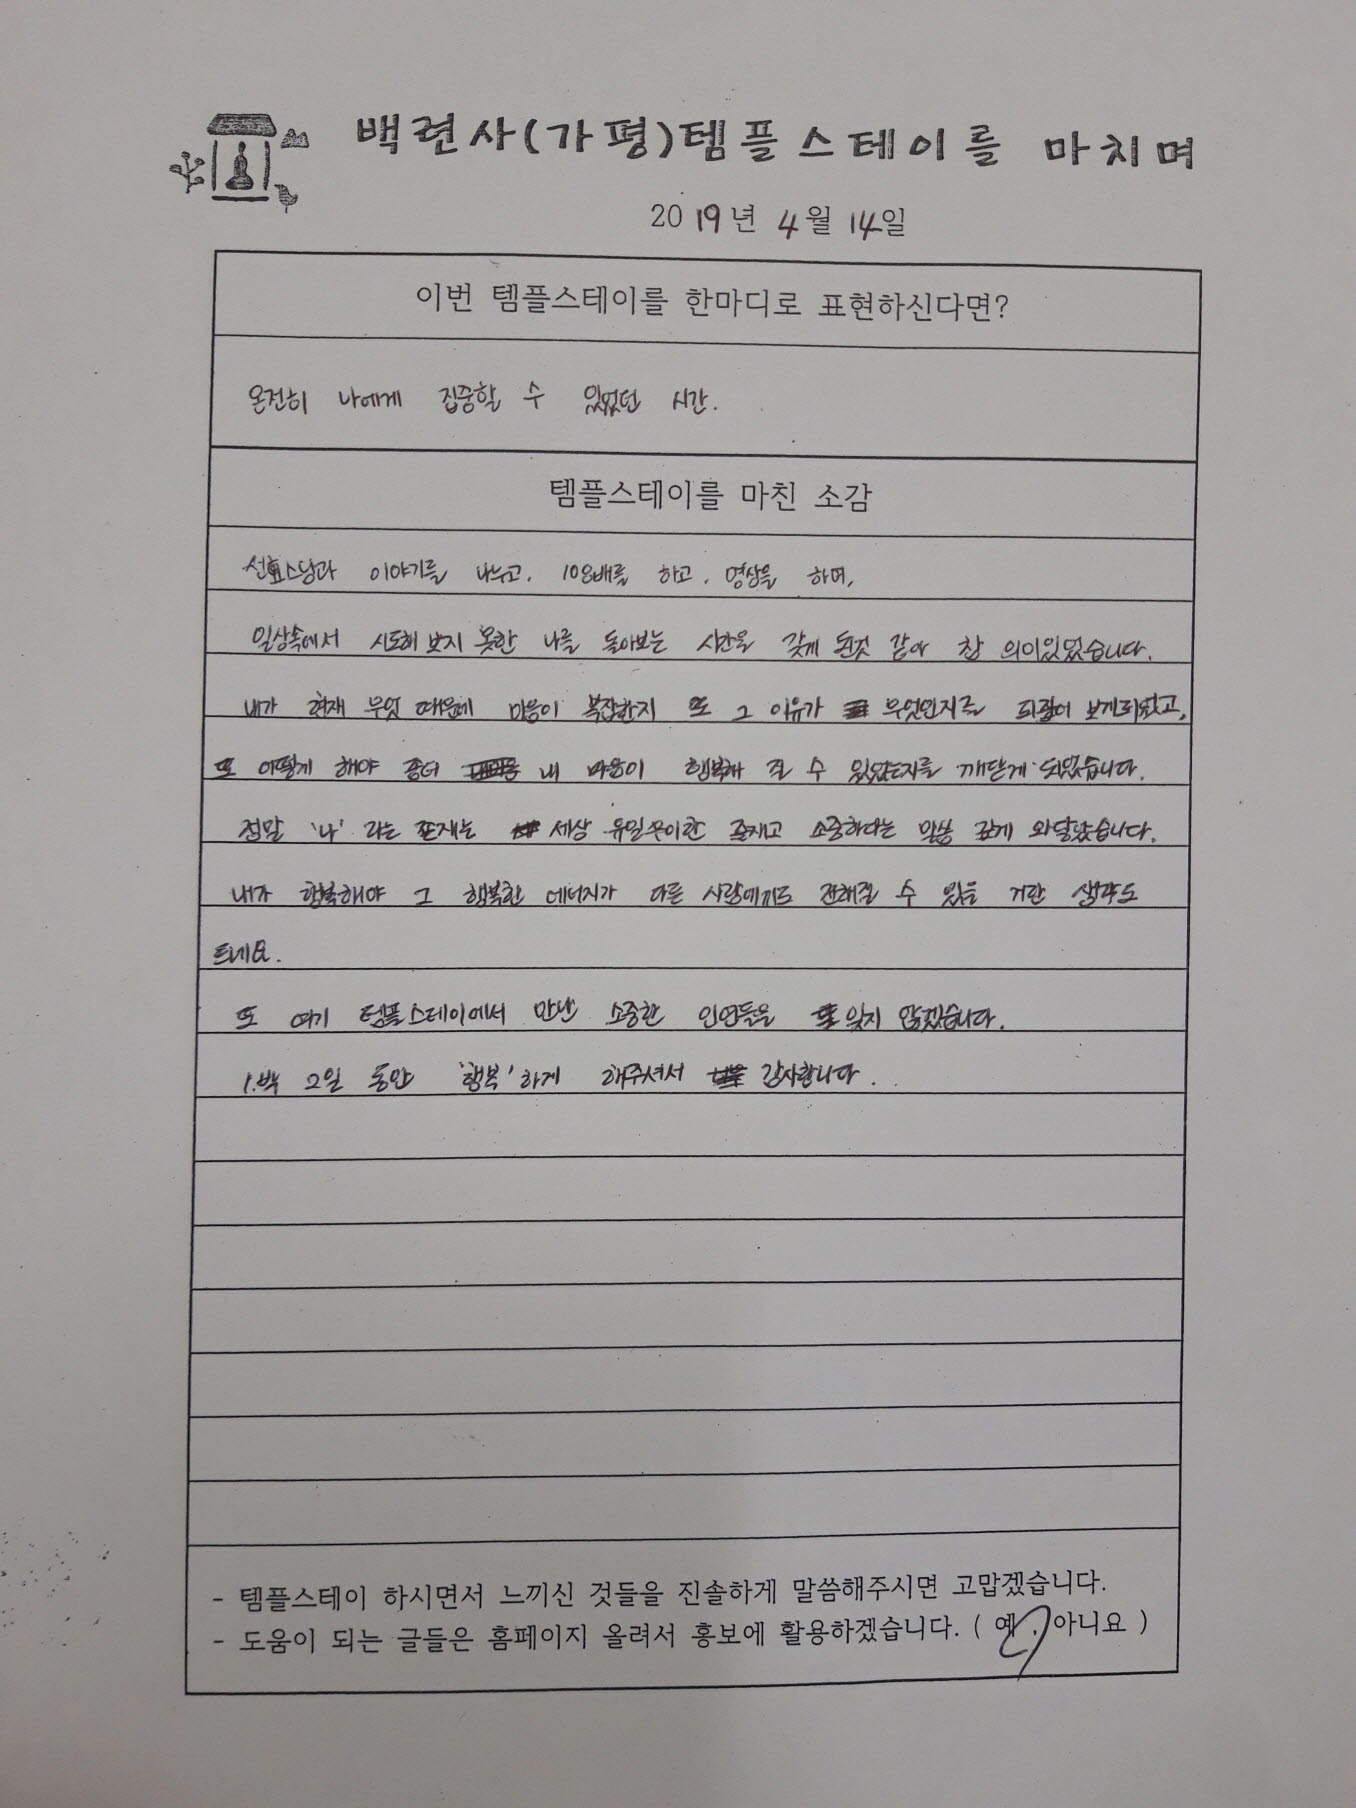 백련사(가평)템플스테이를 마치며
2019년 4월 14일
이번 템플스테이를 한마디로 표현하신다면?
온전히 나에게 집중할 수 있었던 시간.
템플스테이를 마친 소감
선효스님과 이야기를 나누고, 108배를 하고, 명상을 하며,
일상속에서 시도해 보지 못한 나를 돌아보는 시간을 갖게 된것 같아 참 의미있었습니다.
내가 현재 무엇 때문에 마음이 복잡한지 또 그 이유가 무엇인지를 되짚어 보게되었고,
또 어떻게 해야 좀더 내 마음이 행복해 질 수 있었는지를 깨닫게 되었습니다.
정말 '나' 라는 존재는 세상 유일무이한 존재고 소중하다는 말씀 깊게 와닿았습니다.
내가 행복해야 그 행복한 에너지가 다른 사람에게도 전해질 수 있을 거란 생각도
드네요.
또 여기 템플스테이에서 만난 소중한 인연들을 잊지 않겠습니다.
1박 2일 동안 '행복'하게 해주셔서 감사합니다.
- 템플스테이 하시면서 느끼신 것들을 진솔하게 말씀해주시면 고맙겠습니다.
- 도움이 되는 글들은 홈페이지 올려서 홍보에 활용하겠습니다. ( 예 , 아니요 )